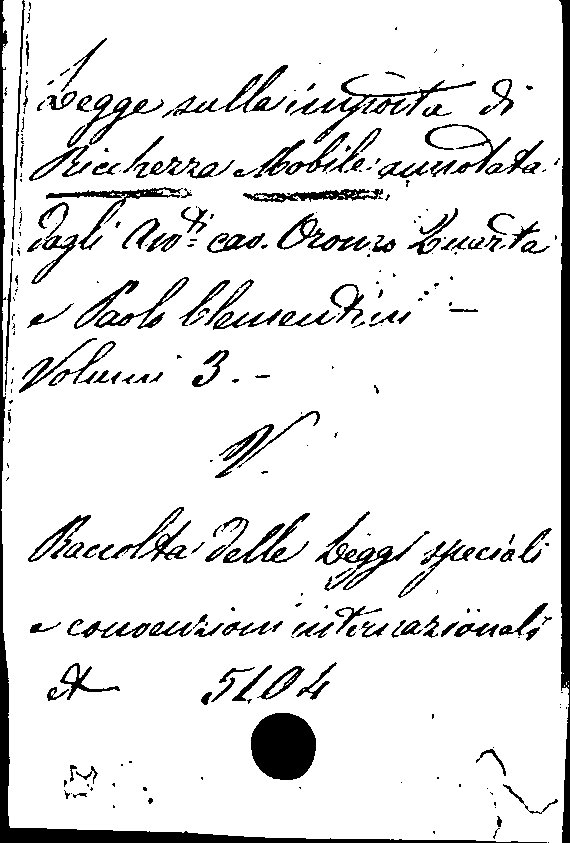 Legge sulla imposta di
Ricchezza Mobile annotata
dagli Avv.ti cav. Oronzo Quarta
e Paolo Clementini —
Volumi 3. -
V.
Raccolta delle Leggi speciali
e convenzioni internazionali
A 5104